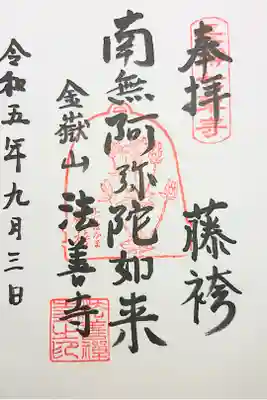 奉拝
藤袴
南無阿弥陀如来
金嶽山
法善寺
令和五年九月三日